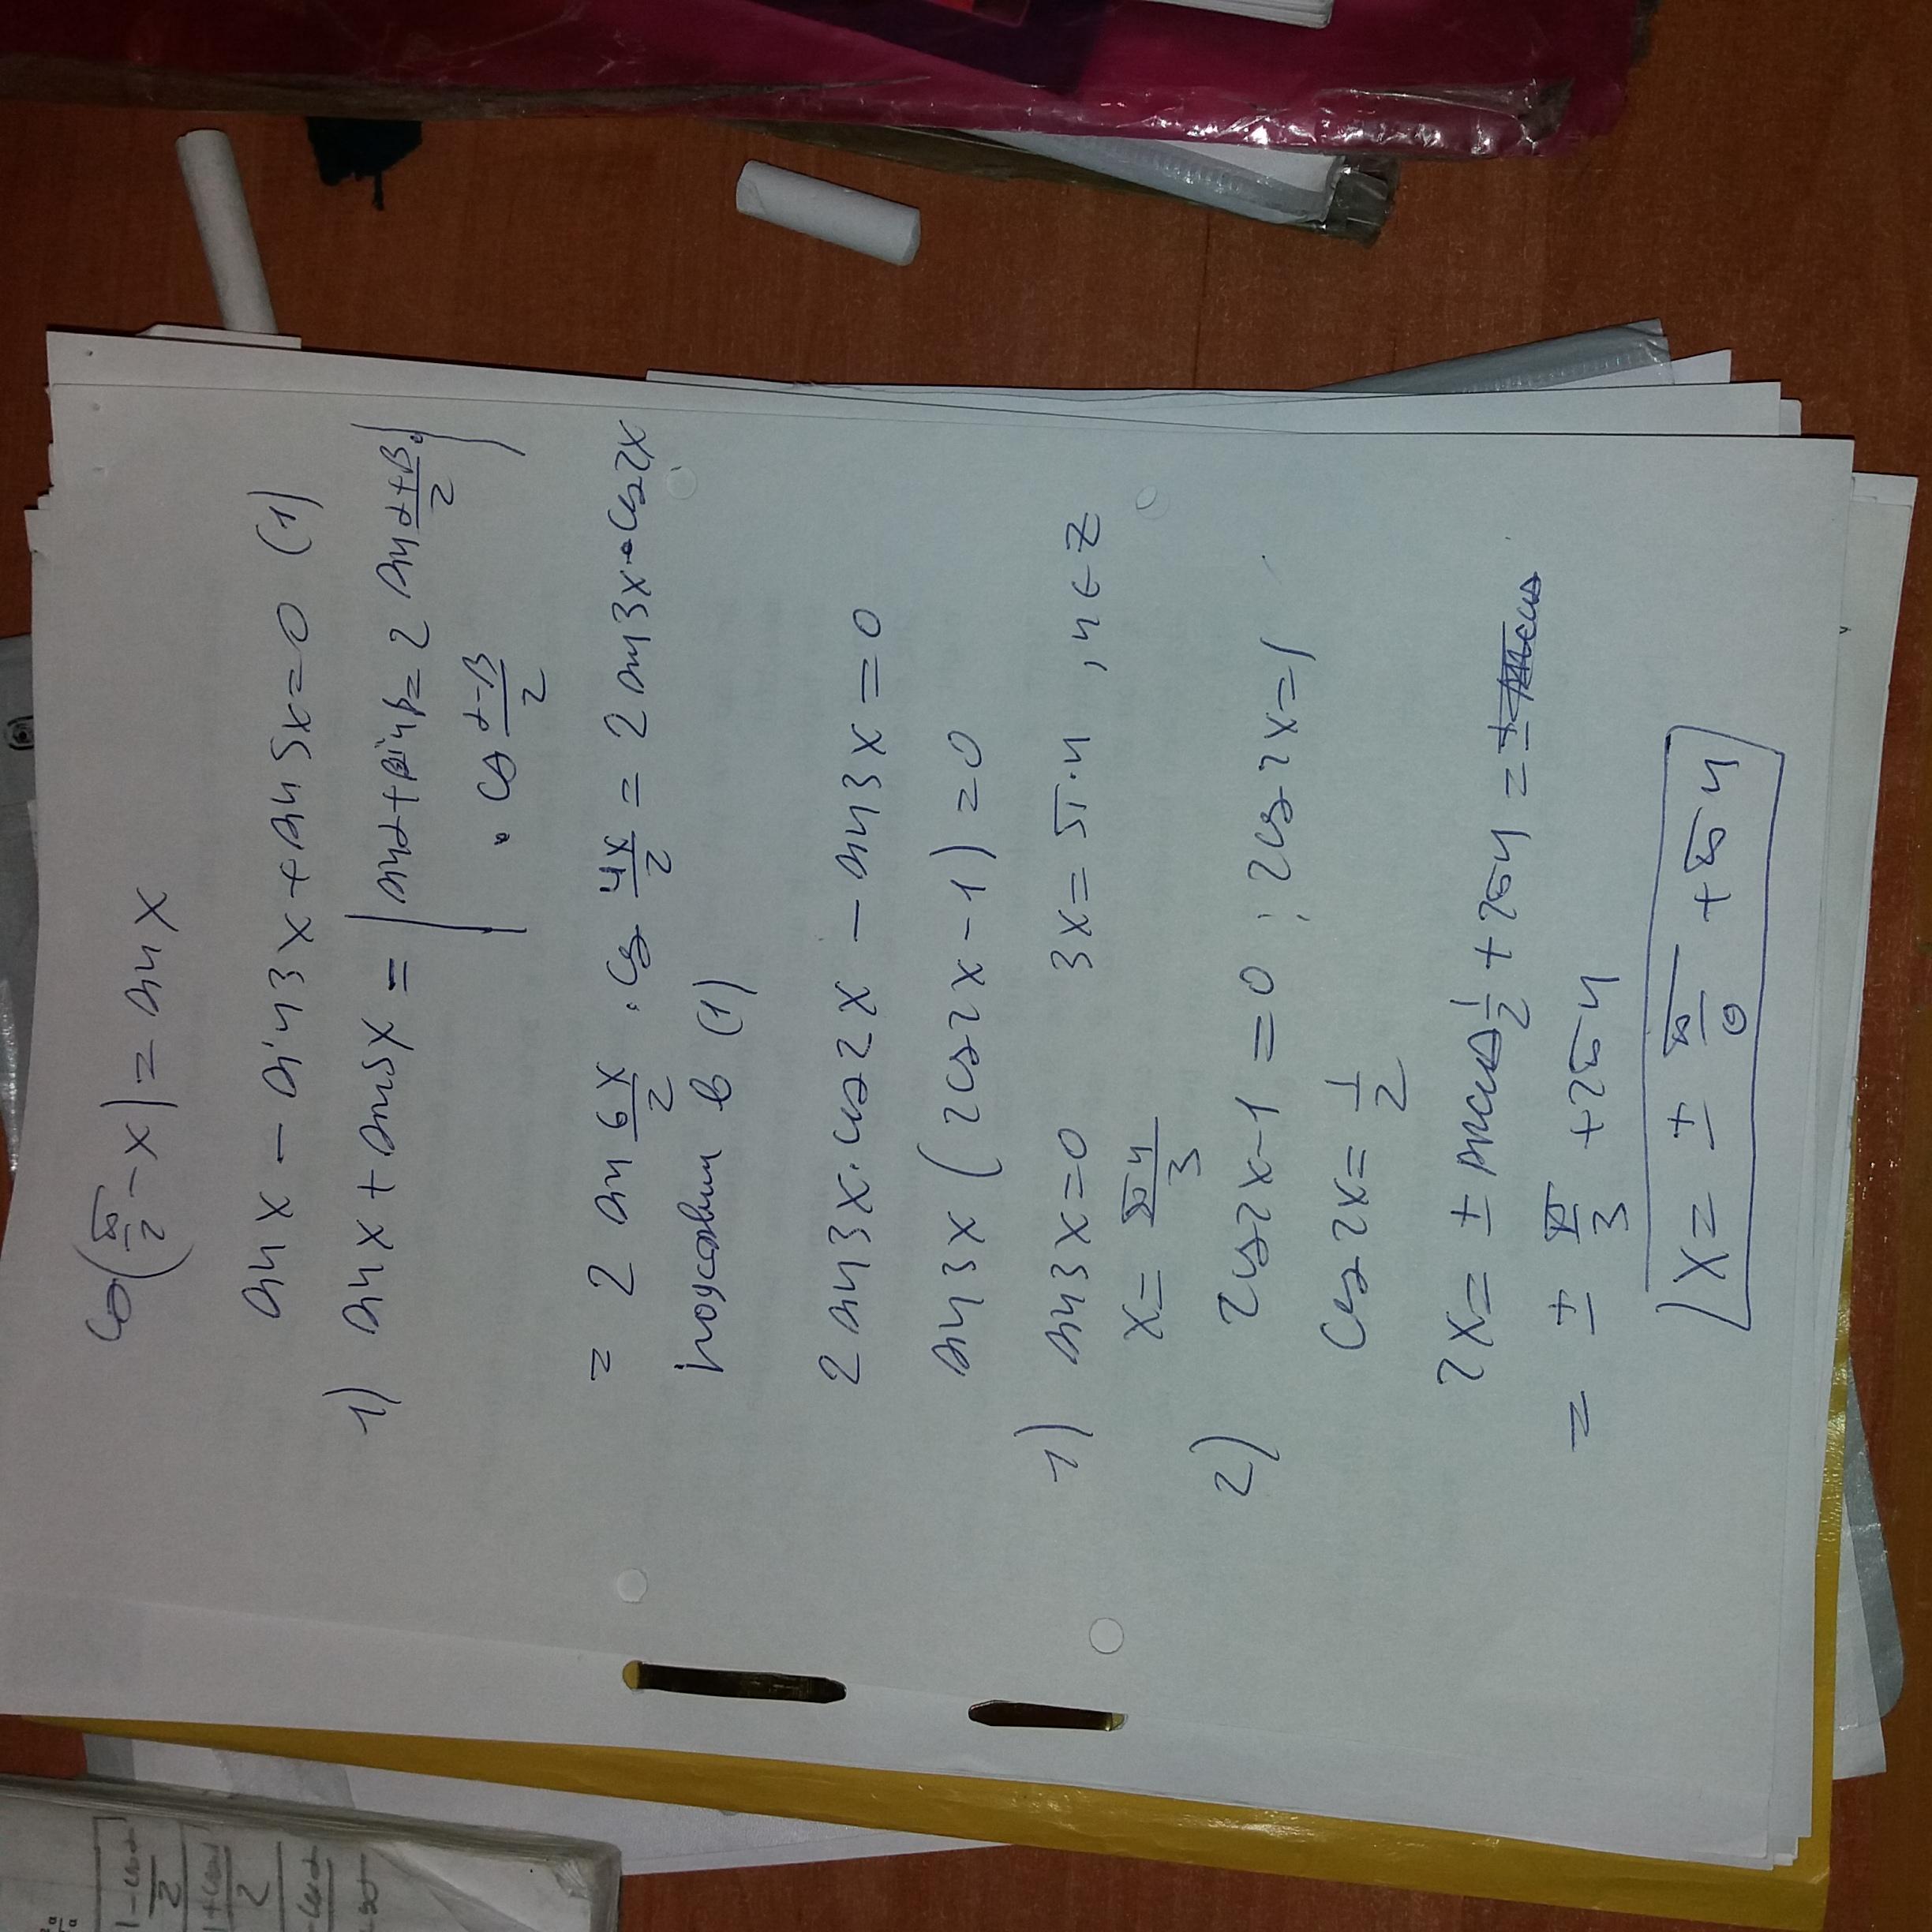 cos(π/2 - x) = sin x
sin x - sin 3x + sin 5x = 0 (1)
1) sin x + sin 5x = | sin α + sin β = 2 sin (α+β)/2 ·
· cos (α-β)/2 |
= 2 sin 6x/2 · cos 4x/2 = 2 sin 3x · cos 2x
подставим в (1)
2 sin 3x · cos 2x - sin 3x = 0
sin 3x (2cos 2x - 1) = 0
1) sin 3x = 0 3x = π · n , n ∈ Z
x = πn/3
2) 2cos 2x - 1 = 0 ; 2cos 2x = 1
cos 2x = 1/2
2x = ± arccos 1/2 + 2πn =
= ± π/3 + 2πn
x = ± π/6 + πn
1-cos α
2
1+cos α
2